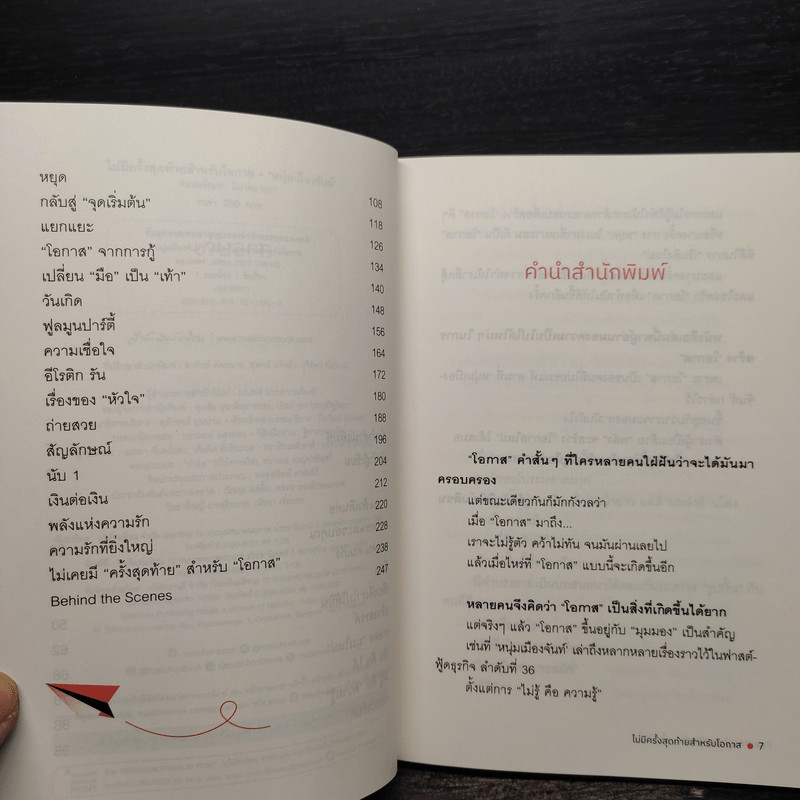 หยุด 108
กลับสู่ “จุดเริ่มต้น” 118
แยกแยะ 126
“โอกาส” จากการกู้ 134
เปลี่ยน “มือ” เป็น “เท้า” 140
วันเกิด 148
ฟูลมูนปาร์ตี้ 156
ความเชื่อใจ 164
อีโรติก รัน 172
เรื่องของ “หัวใจ” 180
ถ่ายสวย 188
สัญลักษณ์ 196
นับ 1 204
เงินต่อเงิน 212
พลังแห่งความรัก 220
ความรักที่ยิ่งใหญ่ 228
ไม่เคยมี “ครั้งสุดท้าย” สำหรับ “โอกาส” 238
Behind the Scenes 247
คำนำสำนักพิมพ์
“โอกาส” คำสั้นๆ ที่ใครหลายคนใฝ่ฝันว่าจะได้มันมา
ครอบครอง
แต่ขณะเดียวกันก็มักกังวลว่า
เมื่อ “โอกาส” มาถึง...
เราจะไม่รู้ตัว คว้าไม่ทัน จนมันผ่านเลยไป
แล้วเมื่อไหร่ที่ “โอกาส” แบบนี้จะเกิดขึ้นอีก
หลายคนจึงคิดว่า “โอกาส” เป็นสิ่งที่เกิดขึ้นได้ยาก
แต่จริงๆ แล้ว “โอกาส” ขึ้นอยู่กับ “มุมมอง” เป็นสำคัญ
เช่นที่ ‘หนุ่มเมืองจันท์’ เล่าถึงหลากหลายเรื่องราวไว้ในฟาสต์-
ฟู้ดธุรกิจ ลำดับที่ 36
ตั้งแต่การ “ไม่รู้ คือ ความรู้”
ไม่มีครั้งสุดท้ายสำหรับโอกาส ● 7